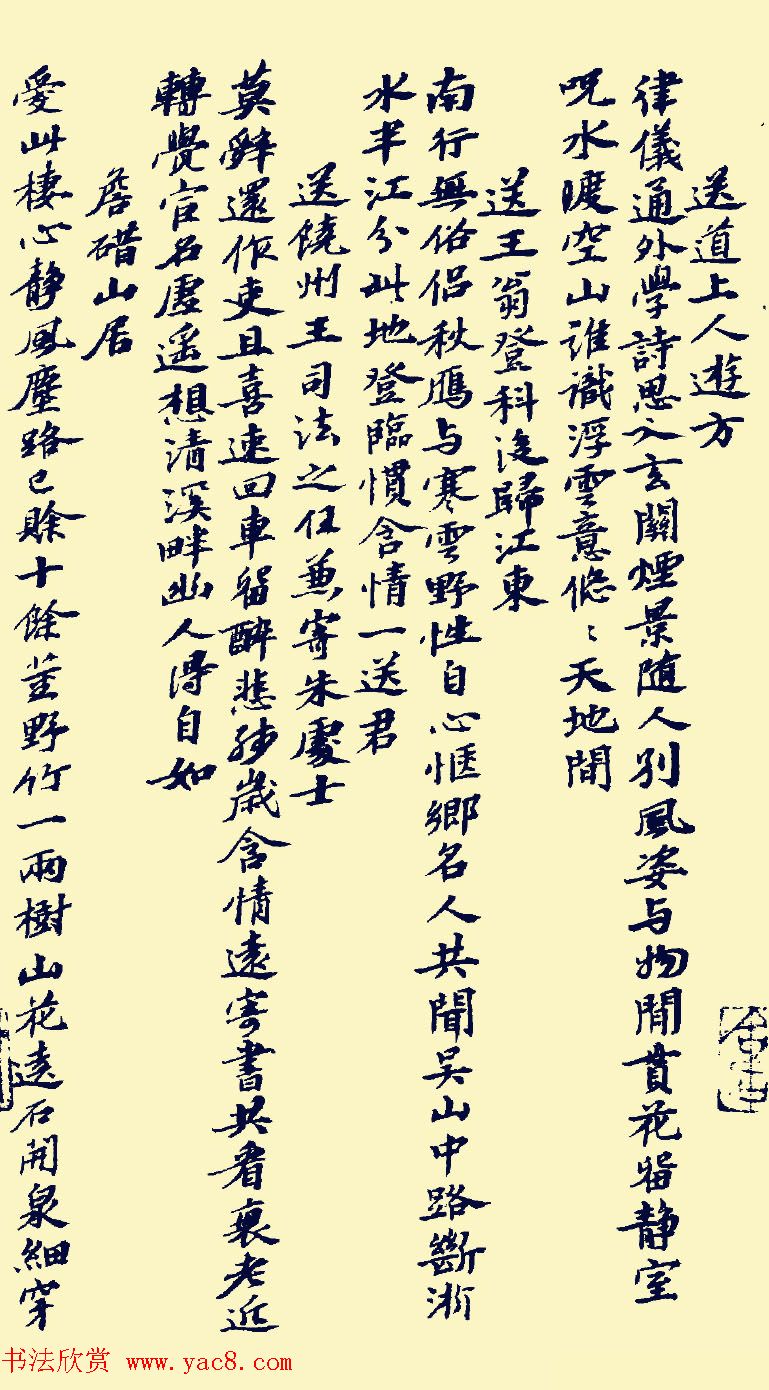 送道上人遊方
律儀通外學詩思入玄關煙景随人別風姿与物閒貫花留静室
呪水度空山誰識浮雲意悠〻天地間
送王翁登科後歸江東
南行無俗侣秋鴈与寒雲野性自心愜鄉名人共聞吴山中路斷浙
水半江分此地登臨慣含情一送君
送饒州王司法之任兼寄朱處士
莫辤還作吏且喜速回車留醉悲殘歲含情遠寄書共看衰老近
轉覺官名虛遥想清溪畔幽人得自如
詹碏山居
愛此棲心静風塵路已賒十餘莖野竹一兩樹山花遶石開泉細穿
书法欣赏 www.yac8.com